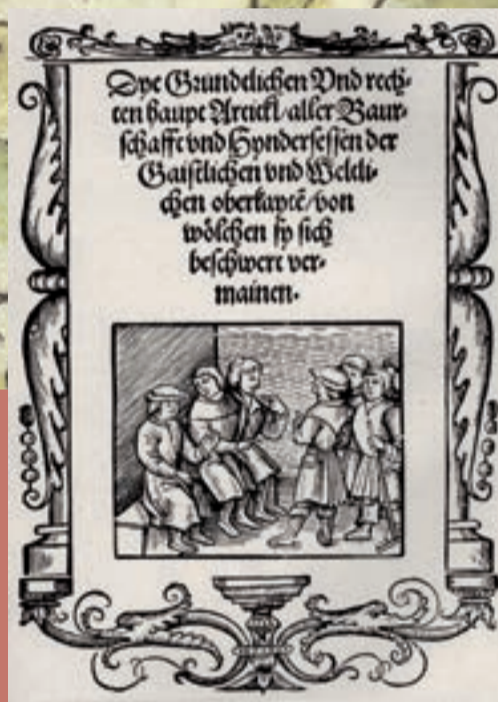 Dye Grundtlichen Vnd rech-
ten haupt Artickl/aller Baur-
schafft vnd Hyndersessen der
Gaistlichen vnd Weltli-
chen oberkayte/von
wölchen sy sich
beschwert ver-
mainen.